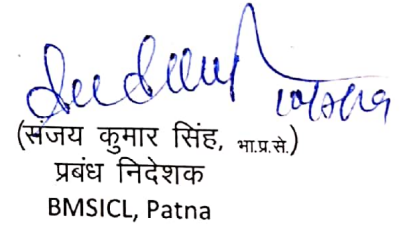 (संजय कुमार सिंह, भा.प्र.से.)
प्रबंध निदेशक
BMSICL, Patna